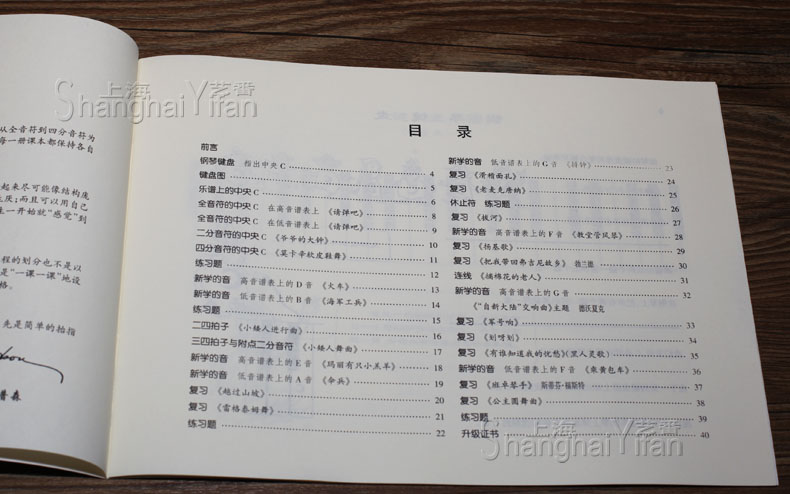 从全音符到四分音符为
每一册课本都保持各自
起来尽可能像结构庞
生厌;而且可以用自己
生一开始就“感觉”到
程的划分也不是以
是“一课一课”地设
格。
先是简单的拍指
普森
上海 艺番
Shanghai Yifan
目 录
前言
钢琴键盘 指出中央C 4
键盘图 5
乐谱上的中央C 6
全音符的中央C 在高音谱表上 《请弹吧》 8
全音符的中央C 在低音谱表上 《请弹吧》 9
二分音符的中央C 《爷爷的大钟》 10
四分音符的中央C 《莫卡辛软皮鞋舞》 11
练习题 12
新学的音 高音谱表上的D音 《火车》 13
新学的音 低音谱表上的B音 《海军工兵》 14
练习题 15
二四拍子 《小矮人进行曲》 16
三四拍子与附点二分音符 《小矮人舞曲》 17
新学的音 高音谱表上的E音 《玛丽有只小羔羊》 18
新学的音 低音谱表上的A音 《伞兵》 19
复习 《越过山坡》 20
复习 《雷格泰姆舞》 21
练习题 22
新学的音 低音谱表上的G音 《排钟》 23
复习 《滑稽面孔》 24
复习 《老麦克唐纳》 25
休止符 练习题 26
复习 《拔河》 27
新学的音 高音谱表上的F音 《教堂管风琴》 28
复习 《杨基歌》 29
复习 《把我带回弗吉尼故乡》 勃兰德 30
连线 《摘棉花的老人》 31
新学的音 高音谱表上的G音 32
《“自新大陆”交响曲》主题 德沃夏克
复习 《军号响》 33
复习 《划呀划》 34
复习 《有谁知道我的忧愁》(黑人灵歌) 35
新学的音 低音谱表上的F音 《乘黄包车》 36
复习 《班卓琴手》 斯蒂芬·福斯特 37
复习 《公主圆舞曲》 38
练习题 39
升级证书 40
上海 艺番
Shanghai Yifan